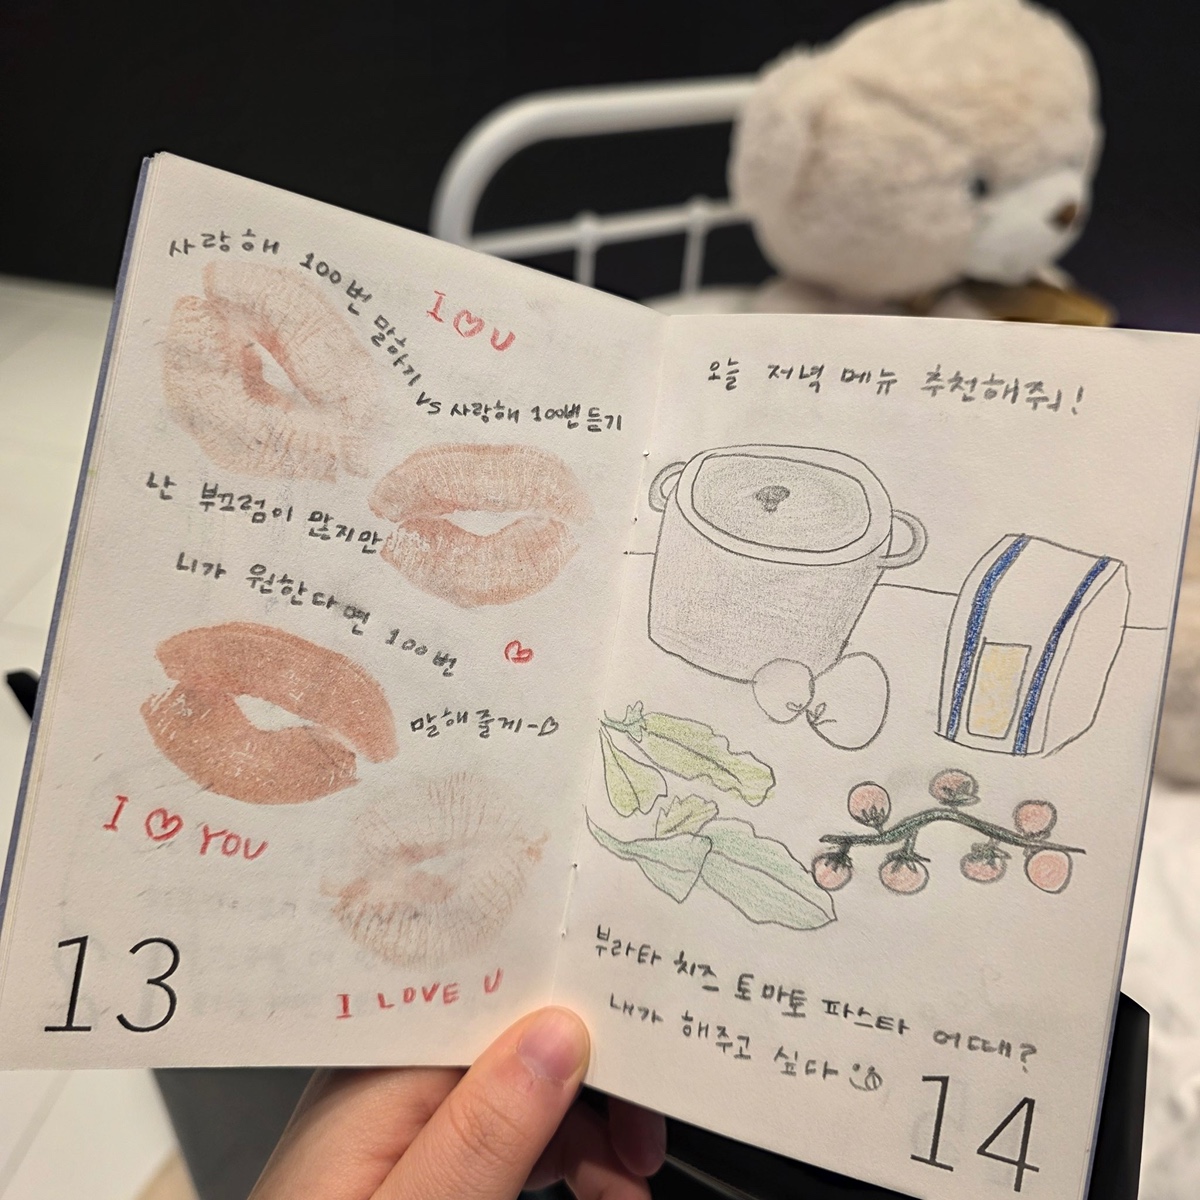 사랑해 100번 말하기
vs 사랑해 100번 듣기
I ♡ U
난 부끄럼이 많지만
니가 원한다면 100번
말해줄게-♡
I ♡ YOU
I LOVE U
13
오늘 저녁 메뉴 추천해줘!
부라타 치즈 토마토 파스타 어때?
내가 해주고 싶다
14